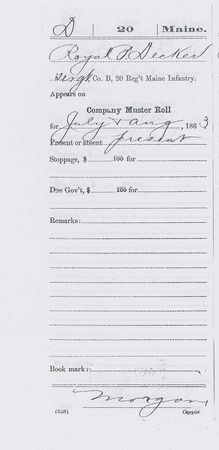 D 20 Maine.
Royal P. Decker
Co. B, 20 Reg't Maine Infantry.
Appears on
Company Muster Roll
for July & Aug, 1863
Present or absent present
Stoppage, $ 100 for
Due Gov't, $ 100 for
Remarks:
Book mark:
Morgan
(358) Copyist.